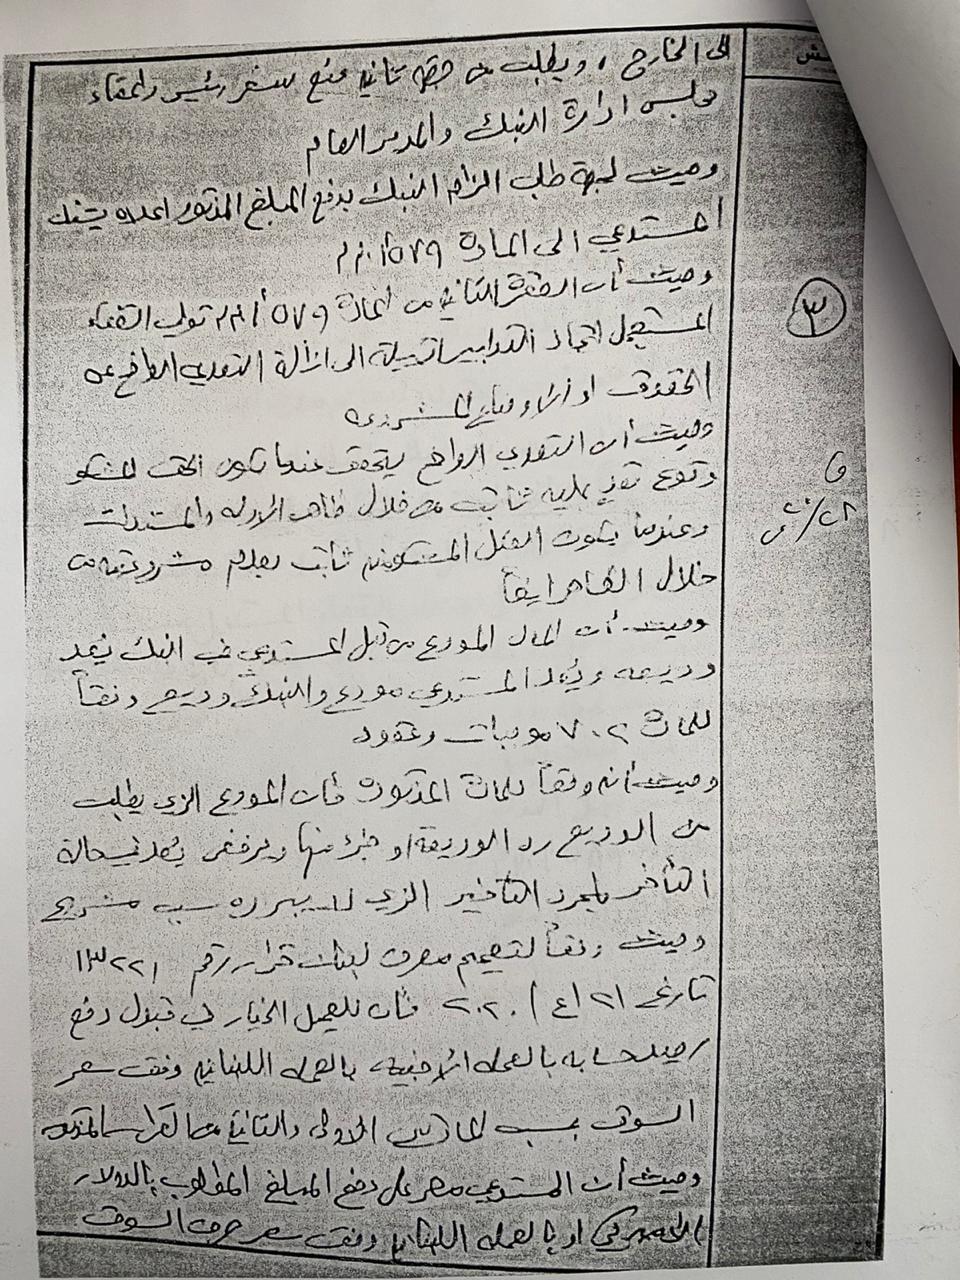 الى الخارج ، ويطلب من جهة ثانية منع سفر رئيس واعضاء
مجلس ادارة البنك والمدير العام
وحيث لجهة طلب الزام البنك بدفع المبلغ المذكور اعلاه يستند
المستدعي الى المادة ٥٧٩ أ.م.م
وحيث أن الفقرة الثانية من المادة ٥٧٩ أ.م.م تولي القضاء
المستعجل اتخاذ التدابير الآيلة الى ازالة التعدي الواضح عن
الحقوق او الاوضاع المشروعة
وحيث أن التعدي الواضح يتحقق عندما يكون الحق المشكو
وقوع تعدٍ عليه ثابت من خلال ظاهر الادلة والمستندات
وعندما يكون الفعل المشكو منه ثابت بعدم مشروعيته من
خلال الظاهر ايضاً
وحيث أن المال المودع من قبل المستدعي في البنك يُعد
وديعة ويُعد المستدعي مودع والبنك وديع وفقاً
للمادة ٧٠٢ موجبات وعقود
وحيث انه وفقاً للمادة المذكورة فأن المودع الذي يطلب
من الوديع رد الوديعة او جزء منها ويرفض يُعد في حالة
التأخر لمجرد التأخير الذي لا يبرره سبب مشروع
وحيث وفقاً لتعميم مصرف لبنان قرار رقم ١٣٢٢١
تاريخ ٢١/٤/٢٠٢٠ فأن للعميل الخيار في قبول دفع
رصيد حسابه بالعملة الاجنبية بالعملة اللبنانية وفق سعر
السوق بحسب المادتين الاولى والثانية من القرار المذكور
وحيث أن المستدعي مصر على دفع المبلغ المطلوب بالدولار
الاميركي او بالعملة اللبنانية وفق سعر صرف السوق
٣